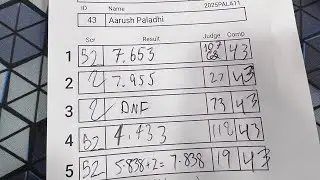 ID Name 2025PALA11
43 Aarush Paladhi
Scr Result Judge Comp
1 52 7.653 43
2 2 7.955 27 43
3 2 DNF 73 43
4 52 4.433 118 43
5 52 5.838+2=7.838 19 43